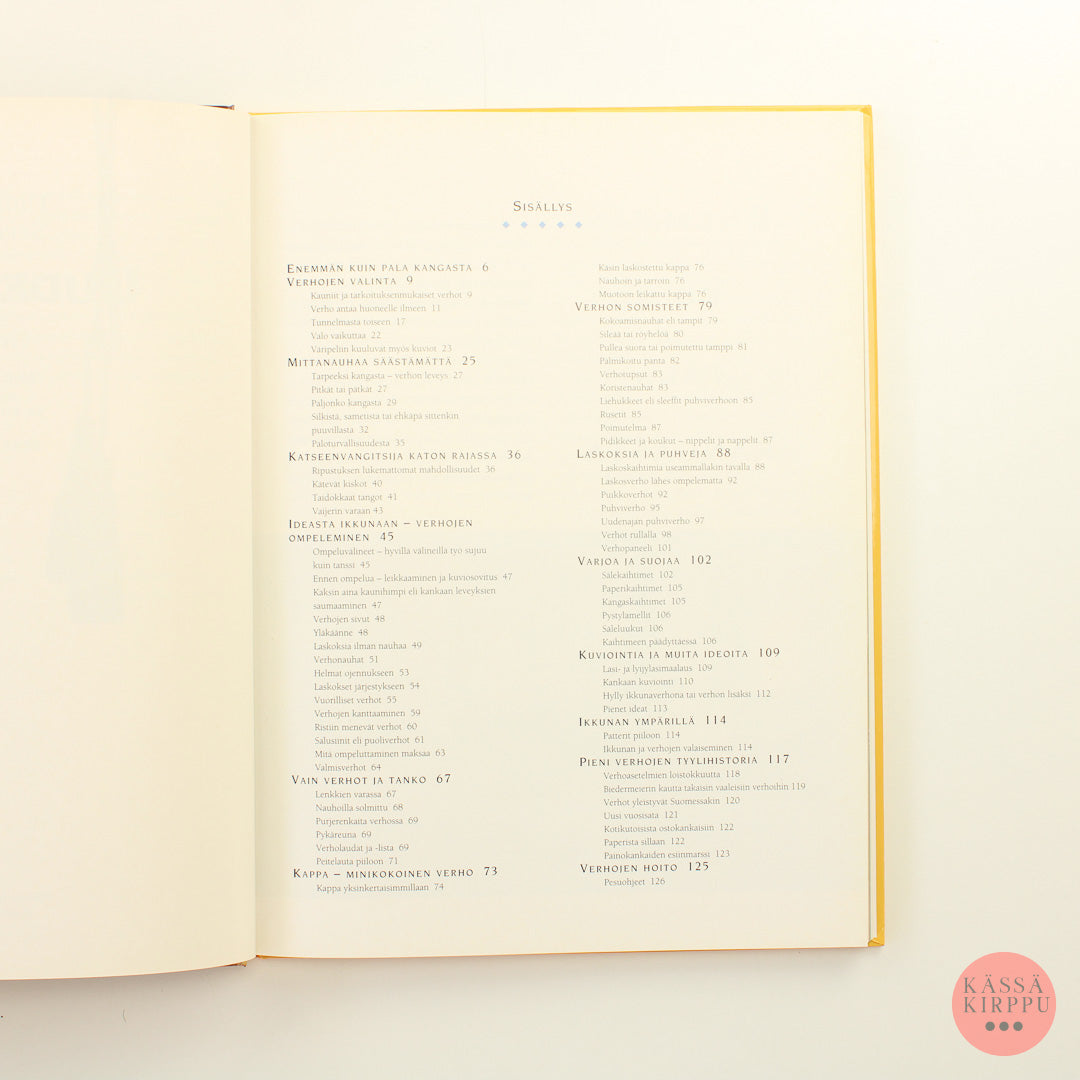 SISÄLLYS
ENEMMÄN KUIN PALA KANGASTA 6
VERHOJEN VALINTA 9
Kauniit ja tarkoituksenmukaiset verhot 9
Verho antaa huoneelle ilmeen 11
Tunnelmasta toiseen 17
Valo vaikuttaa 22
Väripeliin kuuluvat myös kuviot 23
MITTANAUHAA SÄÄSTÄMÄTTÄ 25
Tarpeeksi kangasta – verhon leveys 27
Pitkät tai pätkät 27
Paljonko kangasta 29
Silkistä, sametista tai ehkäpä sittenkin
puuvillasta 32
Paloturvallisuudesta 35
KATSEENVANGITSIJA KATON RAJASSA 36
Ripustuksen lukemattomat mahdollisuudet 36
Kätevät kiskot 40
Taidokkaat tangot 41
Vaijerin varaan 43
IDEASTA IKKUNAAN – VERHOJEN
OMPELEMINEN 45
Ompeluvälineet – hyvillä välineillä työ sujuu
kuin tanssi 45
Ennen ompelua – leikkaaminen ja kuviosovitus 47
Kaksin aina kaunihimpi eli kankaan leveyksien
saumaaminen 47
Verhojen sivut 48
Yläkäänne 48
Laskoksia ilman nauhaa 49
Verhonauhat 51
Helmat ojennukseen 53
Laskokset järjestykseen 54
Vuorilliset verhot 55
Verhojen kanttaaminen 59
Ristiin menevät verhot 60
Salusiinit eli puoliverhot 61
Mitä ompeluttaminen maksaa 63
Valmisverhot 64
VAIN VERHOT JA TANKO 67
Lenkkien varassa 67
Nauhoilla solmittu 68
Purjerenkaita verhossa 69
Pykäreuna 69
Verholaudat ja -lista 69
Peitelauta piiloon 71
KAPPA – MINIKOKOINEN VERHO 73
Kappa yksinkertaisimmillaan 74
Käsin laskostettu kappa 76
Nauhoin ja tarroin 76
Muotoon leikattu kappa 76
VERHON SOMISTEET 79
Kokoamisnauhat eli tampit 79
Sileää tai röyhelöä 80
Pullea suora tai poimutettu tamppi 81
Palmikoitu panta 82
Verhotupsut 83
Koristenauhat 83
Liehukkeet eli sleeffit puhviverhoon 85
Rusetit 85
Poimutelma 87
Pidikkeet ja koukut – nippelit ja nappelit 87
LASKOKSIA JA PUHVEJA 88
Laskoskaihtimia useammallakin tavalla 88
Laskosverho lähes ompelematta 92
Puikkoverhot 92
Puhviverho 95
Uudenajan puhviverho 97
Verhot rullalla 98
Verhopaneeli 101
VARJOA JA SUOJAA 102
Sälekaihtimet 102
Paperikaihtimet 105
Kangaskaihtimet 105
Pystylamellit 106
Säleluukut 106
Kaihtimeen päädyttäessä 106
KUVIOINTIA JA MUITA IDEOITA 109
Lasi- ja lyijylasimaalaus 109
Kankaan kuviointi 110
Hylly ikkunaverhona tai verhon lisäksi 112
Pienet ideat 113
IKKUNAN YMPÄRILLÄ 114
Patterit piiloon 114
Ikkunan ja verhojen valaiseminen 114
PIENI VERHOJEN TYYLIHISTORIA 117
Verhoasetelmien loistokkuutta 118
Biedermeierin kautta takaisin vaaleisiin verhoihin 119
Verhot yleistyvät Suomessakin 120
Uusi vuosisata 121
Kotikutoisista ostokankaisiin 122
Paperista sillaan 122
Painokankaiden esiinmarssi 123
VERHOJEN HOITO 125
Pesuohjeet 126
KÄSSÄ
KIRPPU